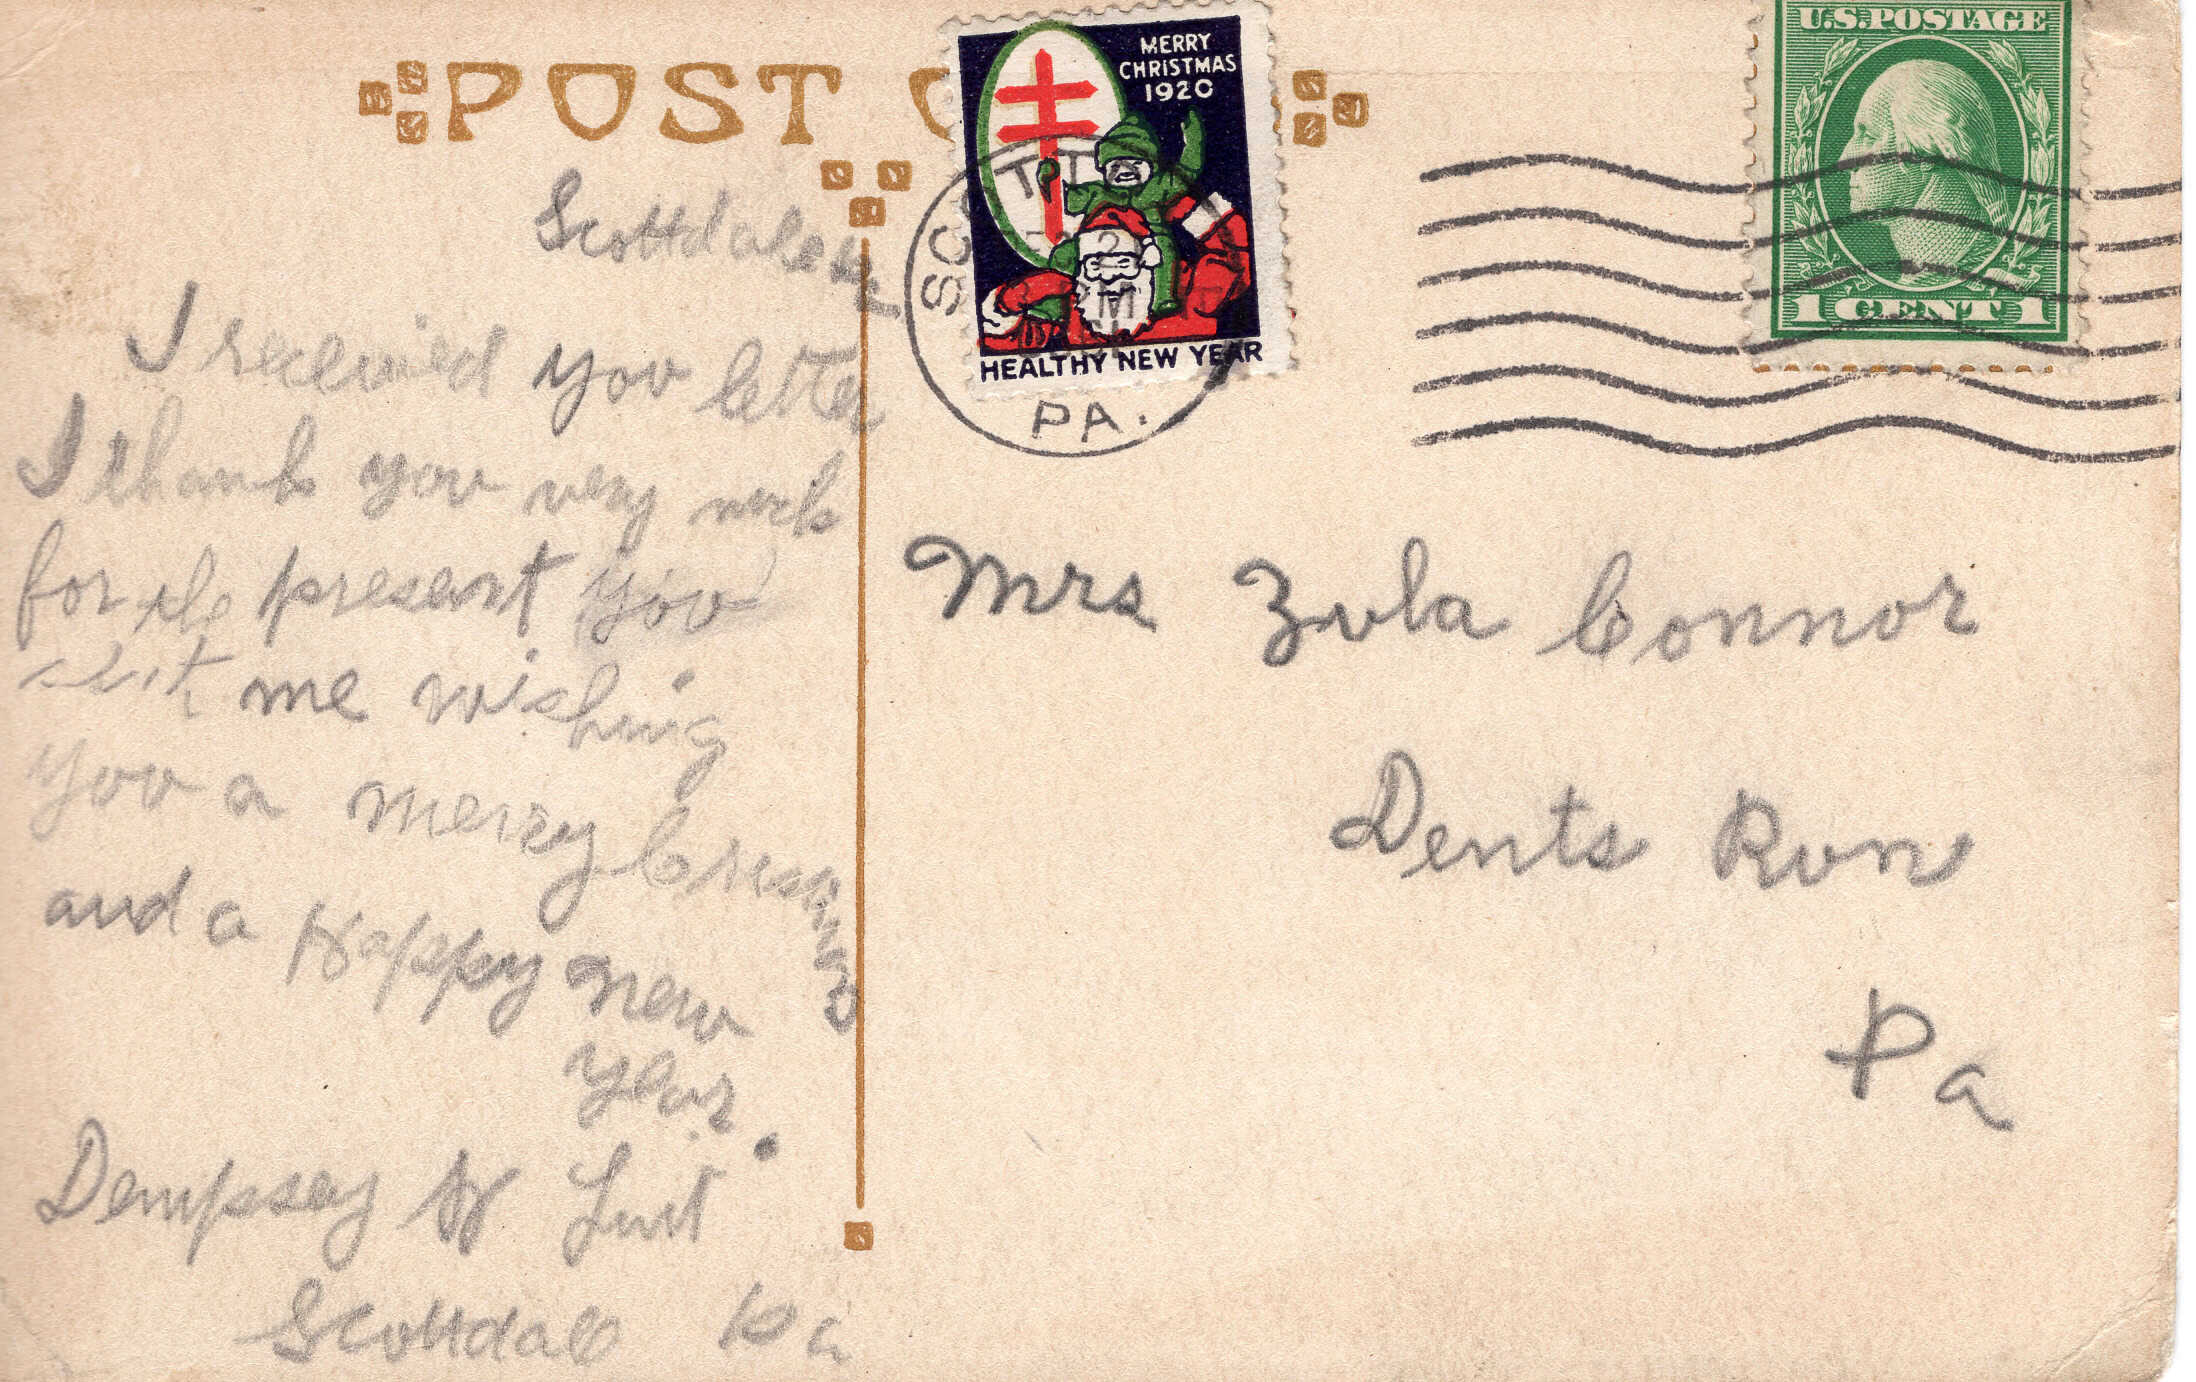 POST C
MERRY
CHRISTMAS
1920
HEALTHY NEW YEAR
U.S. POSTAGE
1 CENT 1
SCOTTD
PA.
Scottdale
I received you letter
I thank you very
for the present you
sent me wishing
you a merry
and a Happy new
year.
Dempsey
Scottdale Pa
Mrs Zula Connor
Dents Run
Pa